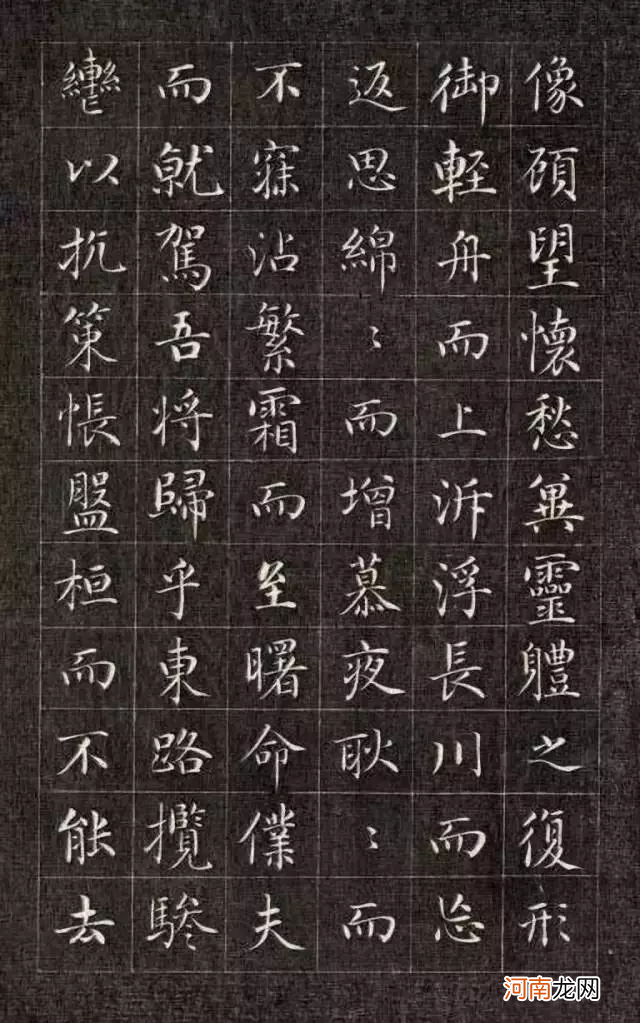 像頋望懷愁兾靈體之復形
御輕舟而上泝浮長川而忘
返思綿〻而增慕夜耿〻而
不寐沾繁霜而至曙命僕夫
而就駕吾将歸乎東路攬騑
轡以抗策悵盤桓而不能去
河南龙网